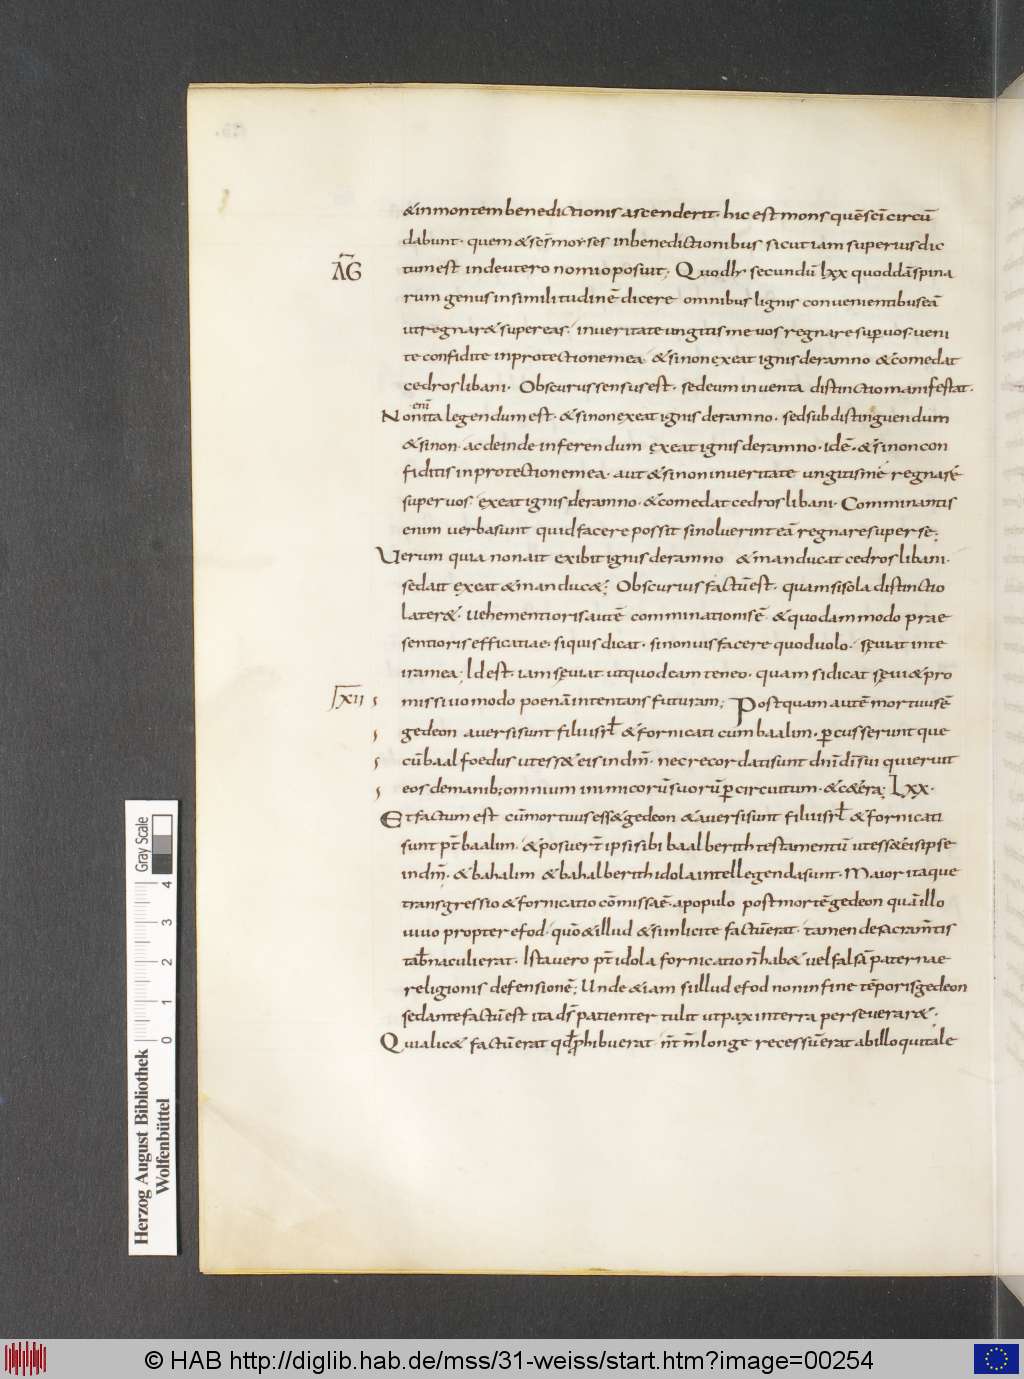 &inmontem benedictionis ascenderit. hic est mons quē sc̄i circū
dabunt. quem & sc̄s moyses inbenedictionibus sicut iam superius dic
A͞G
tum est indeuteronomio posuit; Quod hr̄ secundū lxx quoddā spina
rum genus insimilitudinē dicere omnibus lignis conuenientibus eā
ut regnar& super eas. inueritate ungitis me uos regnare sup uos. ueni
te confidite inprotectione mea. & si non exeat ignis deramno & comedat
cedros libani. Obscurus sensus est. sed eum inuenta distinctio manifestat.
Non enī ita legendum est. & si non exeat ignis deramno. sed subdistinguendum
& si non. ac deinde inferendum exeat ignis deramno. idē. & si non con
fiditis inprotectione mea. aut & si non inueritate ungitis me regnare
super uos. exeat ignis deramno. & comedat cedros libani. Comminantis
enim uerba sunt quid facere possit si noluerint eā regnare super se;
Uerum quia non ait exibit ignis deramno & manducat cedros libani.
sed ait exeat & manduc&; Obscurius factū est. quam si sola distinctio
later&. Uehementioris autē comminationis ē & quodammodo prae
sentioris efficatiae. siquis dicat. si non uis facere quod uolo. sęuiat inte
ira mea; Id est. iam sęuiat utquod eam teneo. quam si dicat sęui& pro
lxii
missiuo modo poenā intentans futuram; Postquam autē mortuus ē
gedeon auersi sunt filii isrł & fornicati cum baalim. percusserunt que
cū baal foedus ut ess& eis in dm̄. nec recordati sunt dn̄i dī sui qui eruit
eos demanib; omnium inimicorū suorū per circuitum. & c&era; Lxx.
Et factum est cū mortuus ess& gedeon & auersi sunt filii isrł & fornicati
sunt p̄t baalim. & posuer̄t ipsi sibi baal berith testamentū ut ess& eis ipse
in dm̄. & bahalim & bahalberith idola intellegenda sunt. Maior itaque
transgressio & fornicatio cōmissa ē. apopulo post mortē gedeon quā illo
uiuo propter efod. quō & illud & si inlicite factū erat. tamen de sacram̄tis
tab̄naculi erat. Ista uero p̄t idola fornicatio n̄ hab& uel falsā paternae
religionis defensionē; Unde & iam si illud efod non infine tēporis gedeon
sed ante factū est ita ds̄ patienter tulit ut pax interra perseuerar&.
Quia lic& factū erat qđ phibuerat n̄t m̄ longe recessū erat abillo qui tale
Herzog August Bibliothek
Wolfenbüttel
0 1 2 3 4
Gray Scale
© HAB http://diglib.hab.de/mss/31-weiss/start.htm?image=00254